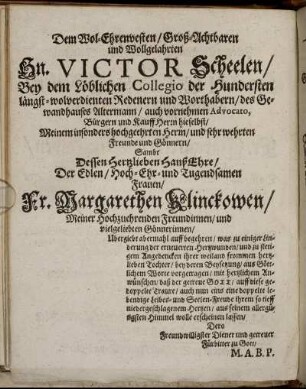 Dem Wol-Ehrenvesten/ Groß-Achtbaren
und Wollgelahrten
Hn. VICTOR Scheelen/
Bey dem Löblichen Collegio der Hundersten
längst-wolverdienten Redenern und Worthabern/ des Ge-
wandhauses Altermann/ auch vornehmen Advocato,
Bürgern und Kauff Herrn hieselbst/
Meinem insonders hochgeehrten Herrn/ und sehr wehrten
Freunde und Gönnern/
Sambt
Dessen Hertzlieben Hauß Ehre/
Der Edlen/ Hoch-Ehr- und Tugendsamen
Frauen/
Fr. Margarethen Klinckowen/
Meiner Hochzuehrenden Freundinnen/ und
vielgeliebten Gönnerinnen/
Übergiebt abermahl auff begehren/ was zu einiger
der erneuerten Hertzwunden/ und zu
gem Angedencken ihrer weiland frommen hertz-
lieben Tochter/ bey deren Beysetzung/ aus Göt-
lichem Worte vorgetragen/ mit hertzlichem An-
wünschen/ daß der getreue GOTT/ auff diese ge-
doppelte Trauer/ auch nun eins eine doppelte le-
bendige Leibes- und Seelen-Freude ihrem so tieff
niedergeschlagenem Hertzen/ aus seinem allergü-
tigsten Himmel wolle erscheinen lassen/
Dero
Freundwilligster Diener und getreuer
Fürbitter zu Gott/
M. A. B. P.